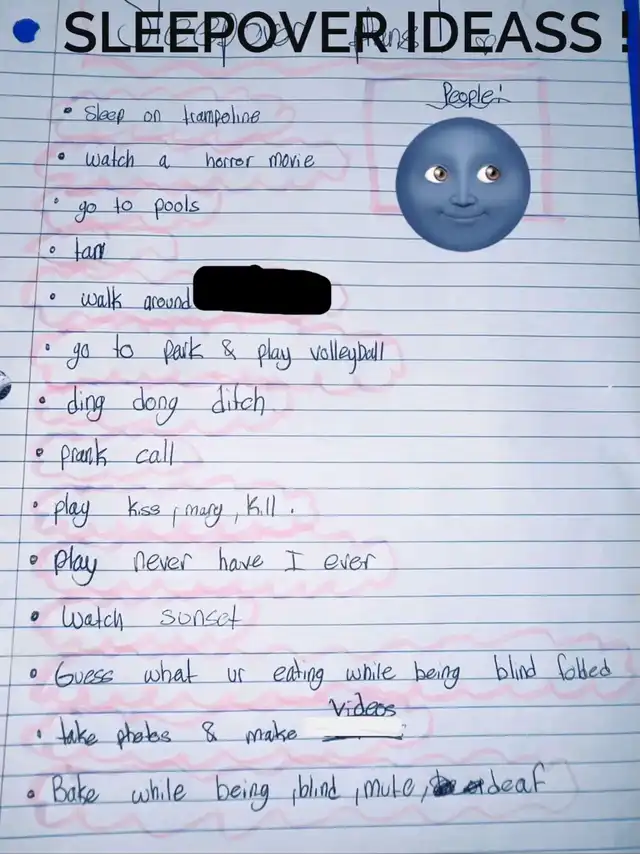 SLEEPOVER IDEASS !
People:
• Sleep on trampoline
• watch a horror movie
• go to pools
• tan
• walk around
• go to park & play volleyball
• ding dong ditch
• prank call
• play kiss, mary, kill.
• play never have I ever
• Watch sunset
• Guess what ur eating while being blind folded
• take photos & make Videos
• Bake while being ,blind ,mute, deaf